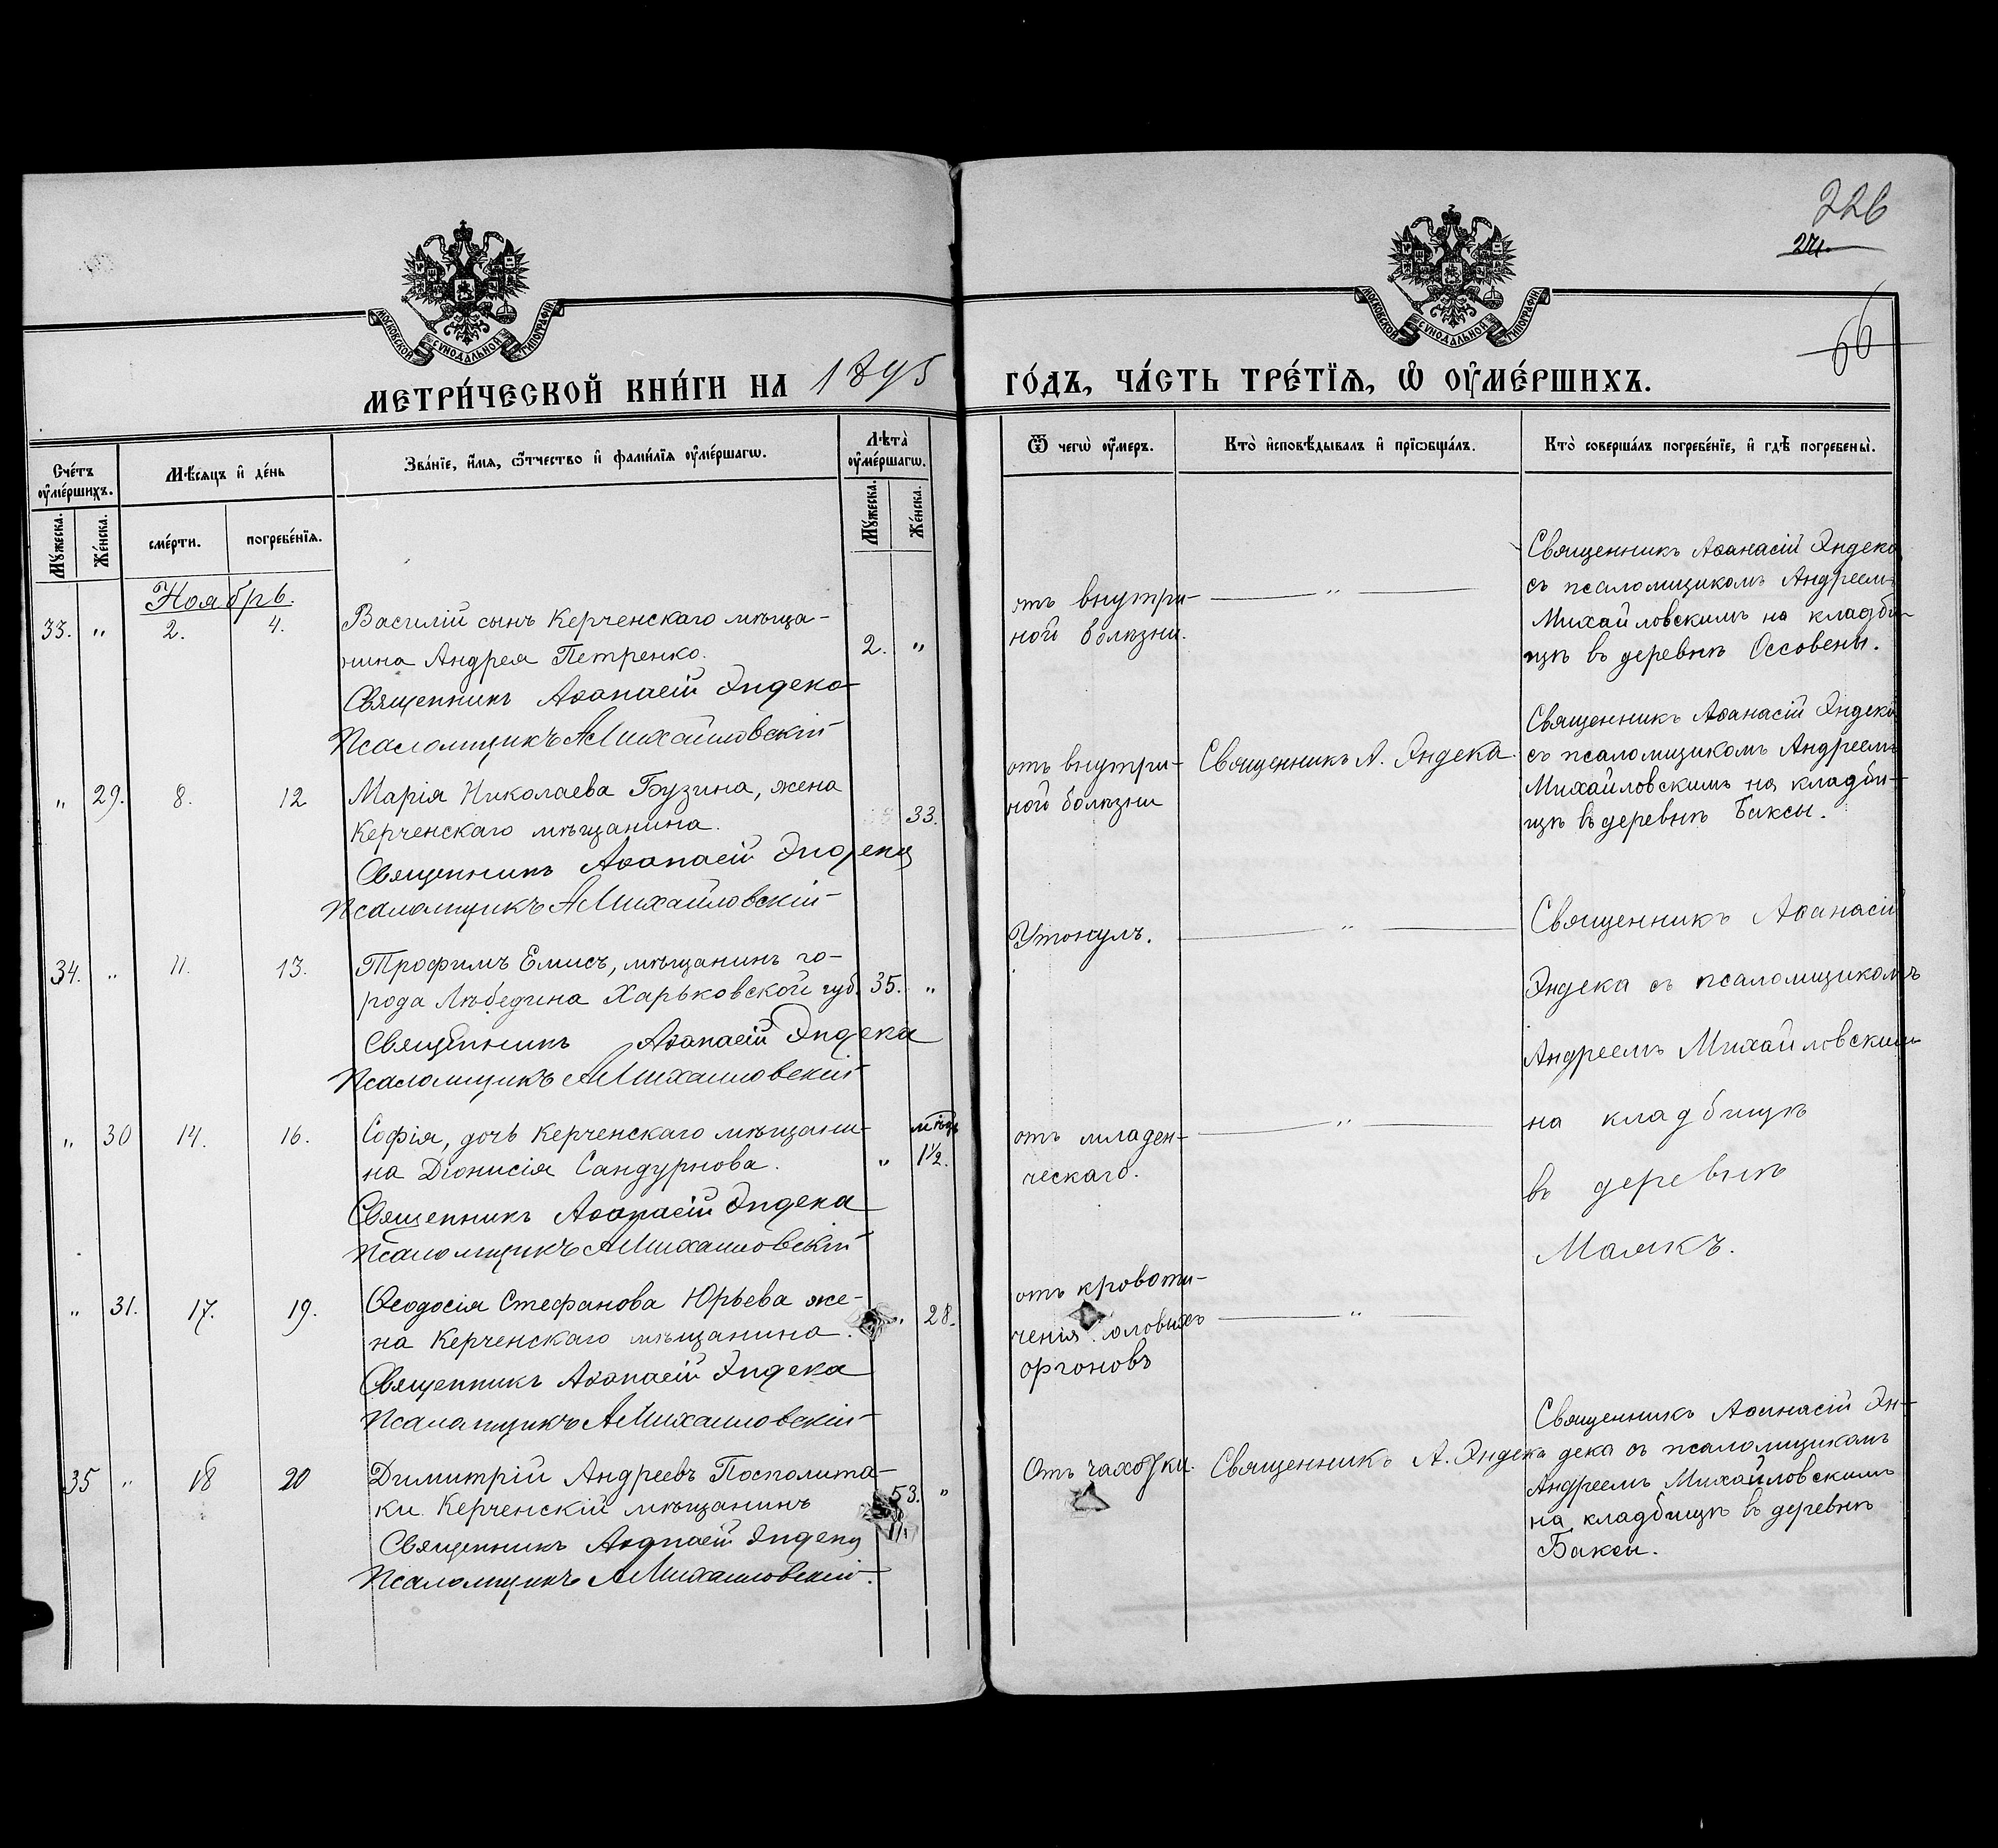 226
274.
66
МОСКОВСКОЙ СѴНОДАЛЬНОЙ ТИПОГРАФІИ
МОСКОВСКОЙ СѴНОДАЛЬНОЙ ТИПОГРАФІИ
МЕТРИ́ЧЕСКОЙ КНИ́ГИ НА 1895
ГО́ДЪ, ЧА́СТЬ ТРЕ́ТЇѦ, Ѽ ОУ҆МЕ́РШИХЪ.
Сче́тъ оу҆ме́ршихъ.
Мѣ́сѧцъ и҆ де́нь
Зва́нїе, и҆́мѧ, ѻ҆́тчество и҆ фами́лїѧ оу҆ме́ршагѡ.
Лѣта̀ оу҆ме́ршагѡ.
Ѿ чегѡ̀ оу҆́меръ.
Кто̀ и҆сповѣ́дывалъ и҆ прїѡбща́лъ.
Кто̀ соверша́лъ погребе́нїе, и҆ гдѣ̀ погребены̀.
Мꙋ́жеска.
Же́нска.
сме́рти.
погребе́нїѧ.
Мꙋ́жеска.
Же́нска.
Ноябрь.
33. " 2. 4.
Василій сынъ Керченскаго мѣща-
нина Андрея Петренко.
2. "
Священникъ Аѳанасій Эндека
Псаломщикъ АМихайловскій
отъ внутри-
ной болѣзни.
"
Священникъ Аѳанасій Эндека
съ псаломщикомъ Андреемъ
Михайловскимъ на кладби-
щѣ въ деревнѣ Оссовены.
" 29. 8. 12
Марія Николаева Бузина, жена
Керченскаго мѣщанина.
33.
Священникъ Аѳанасій Эндека
Псаломщикъ АМихайловскій
отъ внутри-
ной болѣзни
Священникъ А. Эндека
Священникъ Аѳанасій Эндека
съ псаломщикомъ Андреемъ
Михайловскимъ на кладби-
щѣ въ деревнѣ Баксы.
34. " 11. 13.
Трофимъ Емисъ, мѣщанинъ го-
рода Лѣбедина Харьковской губ.
35. "
Священникъ Аѳанасій Эндека
Псаломщикъ АМихайловскій
Утонулъ.
"
Священникъ Аѳанасій
Эндека съ псаломщикомъ
Андреемъ Михайловскимъ
на кладбищѣ
въ деревнѣ
Маякъ.
" 30 14. 16.
Софія, дочь Керченскаго мѣщани-
на Діонисія Сандурнова.
" 1½.
Священникъ Аѳанасій Эндека
Псаломщикъ АМихайловскій
отъ младен-
ческаго.
"
" 31. 17. 19.
Ѳеодосія Стефанова Юрьева же-
на Керченскаго мѣщанина.
" 28.
Священникъ Аѳанасій Эндека
Псаломщикъ АМихайловскій
отъ кровоти-
ченія половыхъ
оргоновъ
"
35 " 18 20
Димитрій Андреевъ Посполита-
ки Керченскій мѣщанинъ
53. "
Священникъ Аѳанасій Эндека
Псаломщикъ АМихайловскій.
Отъ чахотки.
Священникъ А. Эндека
Священникъ Аѳанасій Эн-
дека съ псаломщикомъ
Андреемъ Михайловскимъ
на кладбищѣ въ деревнѣ
Баксы.